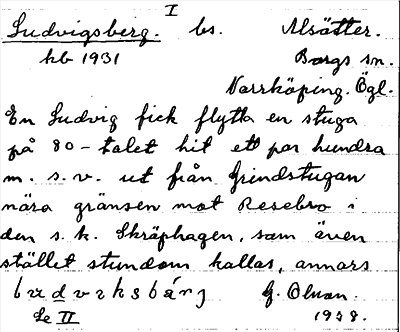 I
Ludvigsberg. bs. Alsätter.
kb 1931 Borgs sn.
Norrköping. Ögl.
En Ludvig fick flytta en stuga
på 80-talet hit ett par hundra
m. s.v. ut från Grindstugan
nära gränsen mot Resebro i
den s.k. Skräphagen, som även
stället stundom kallas, annars
G. Olson.
Se II 1928.